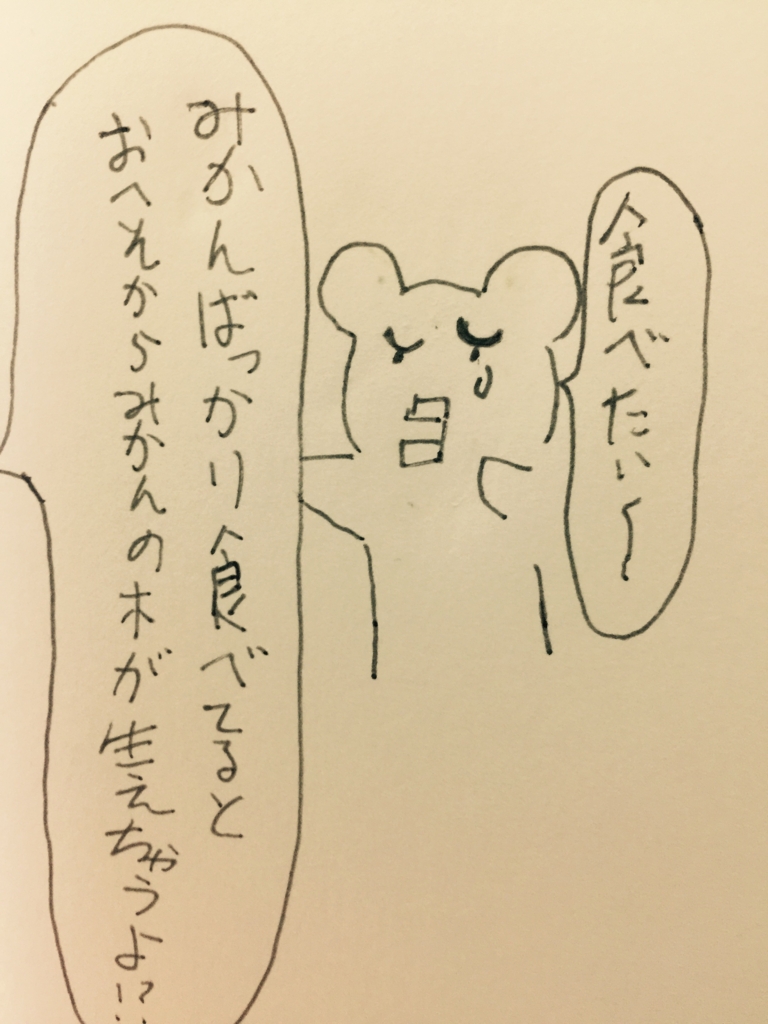 食べたい〜
みかんばっかり食べてると
おへそからみかんの木が生えちゃうよ!?